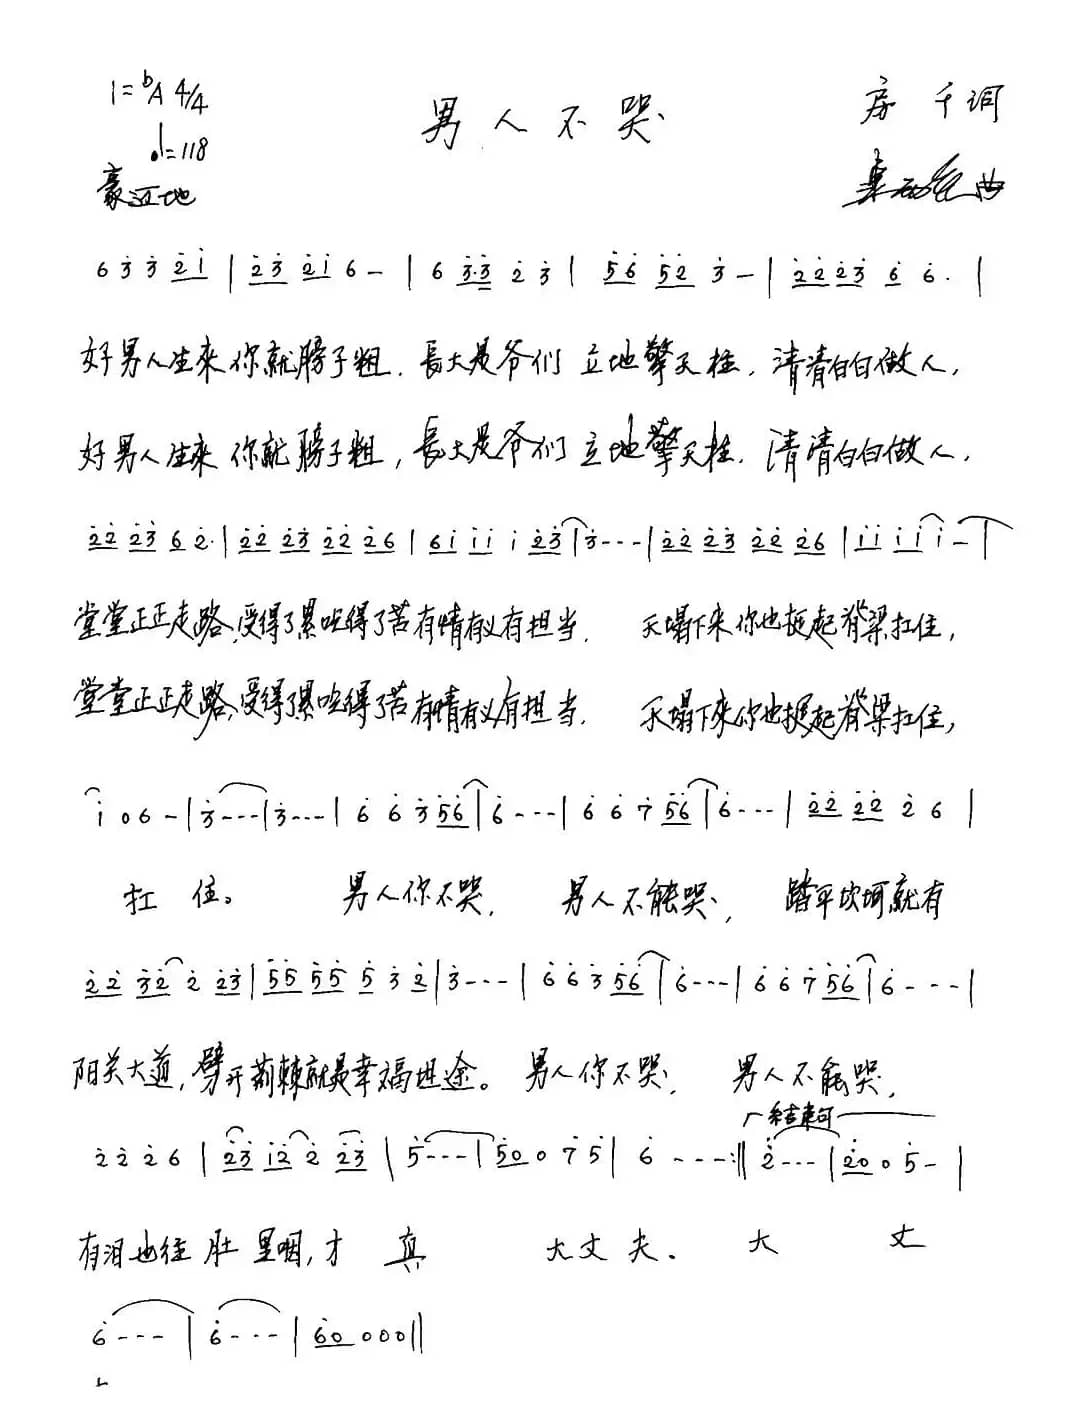 1=bA 4/4
男人不哭
房千词
♩=118
豪迈地
曲
6 3 3 2 1 | 2 3 2 1 6 - | 6 3·3 2 3 | 5 6 5 2 3 - | 2 2 2 3 6 6 · |
好男人生來你就膀子粗．長大是爷们 立地擎天柱，清清白白做人，
好男人生来你就膀子粗，長大是爷们 立地擎天柱．清清白白做人，
2 2 2 3 6 2 · | 2 2 2 3 2 2 2 6 | 6 1 1 1 1 2 3 | 3 - - - | 2 2 2 3 2 2 2 6 | 1 1 1 1 1 - |
堂堂正正走路，受得了累吃得了苦有情有义有担当． 天塌下来你也挺起脊梁扛住，
堂堂正正走路，受得了累吃得了苦有情有义有担当． 天塌下来你也挺起脊梁扛住，
1 0 6 - | 3 - - - | 3 - - - | 6 6 3 5 6 | 6 - - - | 6 6 7 5 6 | 6 - - - | 2 2 2 2 2 6 |
扛 住。 男人你不哭， 男人不能哭， 踏平坎坷就有
2 2 3 2 2 2 3 | 5 5 5 5 5 3 2 | 3 - - - | 6 6 3 5 6 | 6 - - - | 6 6 7 5 6 | 6 - - - |
阳关大道，劈开荊棘就是幸福坦途。 男人你不哭， 男人不能哭，
结束句
2 2 2 6 | 2 3 1 2 2 2 3 | 5 - - - | 5 0 0 7 5 | 6 - - - :‖ 2 - - - | 2 0 0 5 - |
有泪也往肚里咽，才 真 大丈夫。 大 丈
6 - - - | 6 - - - | 6 0 0 0 0 ‖